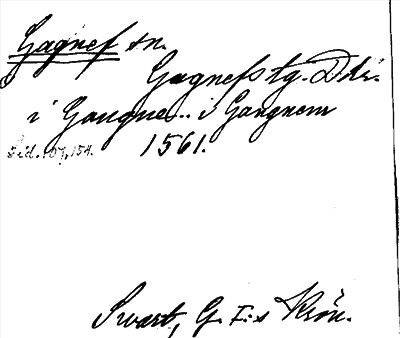 Gagnef sn.
Gagnefs tg. Dkr.
i Gangne... i Gangnem
Sid. 107, 154. 1561.
Swart, G. I:s Krön.